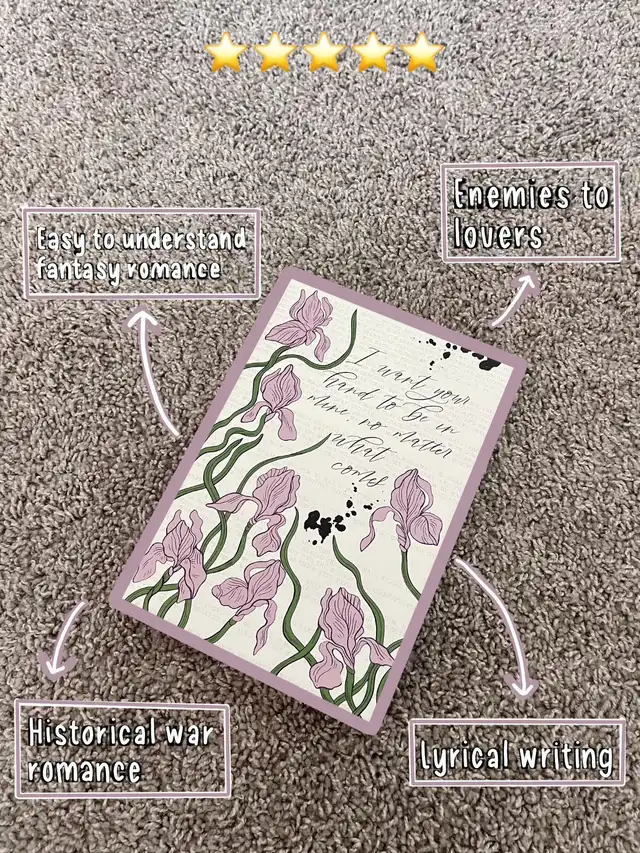 Enemies to
lovers
Easy to understand
fantasy romance
I want your
hand to be in
mine, no matter
what
comes
Historical war
romance
lyrical writing